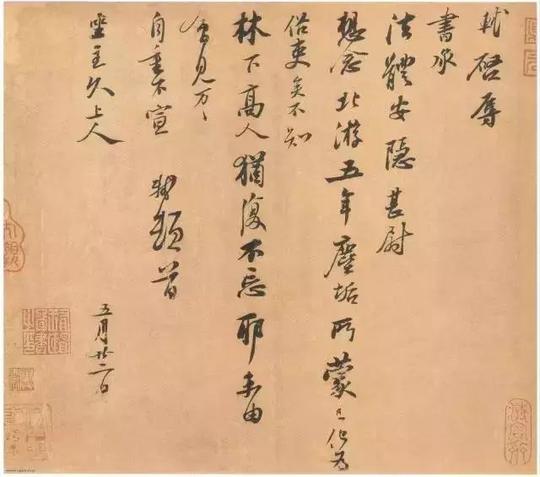 軾啓辱
書承
法體安隱甚尉
想念北游五年塵垢所蒙已化爲
俗吏矣不知
林下高人猶復不忘耶未由
會見万万
自重不宣
軾頓首
坐主久上人
五月廿二日